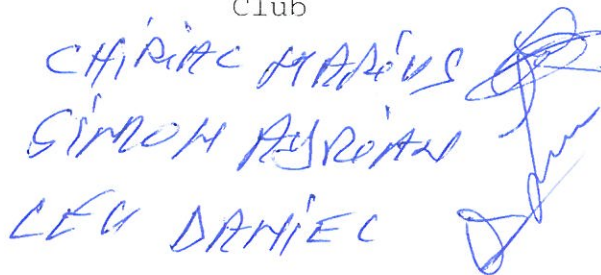 Club
CHIRIAC MARIUS
SIMION ADRIAN
LEU DANIEL